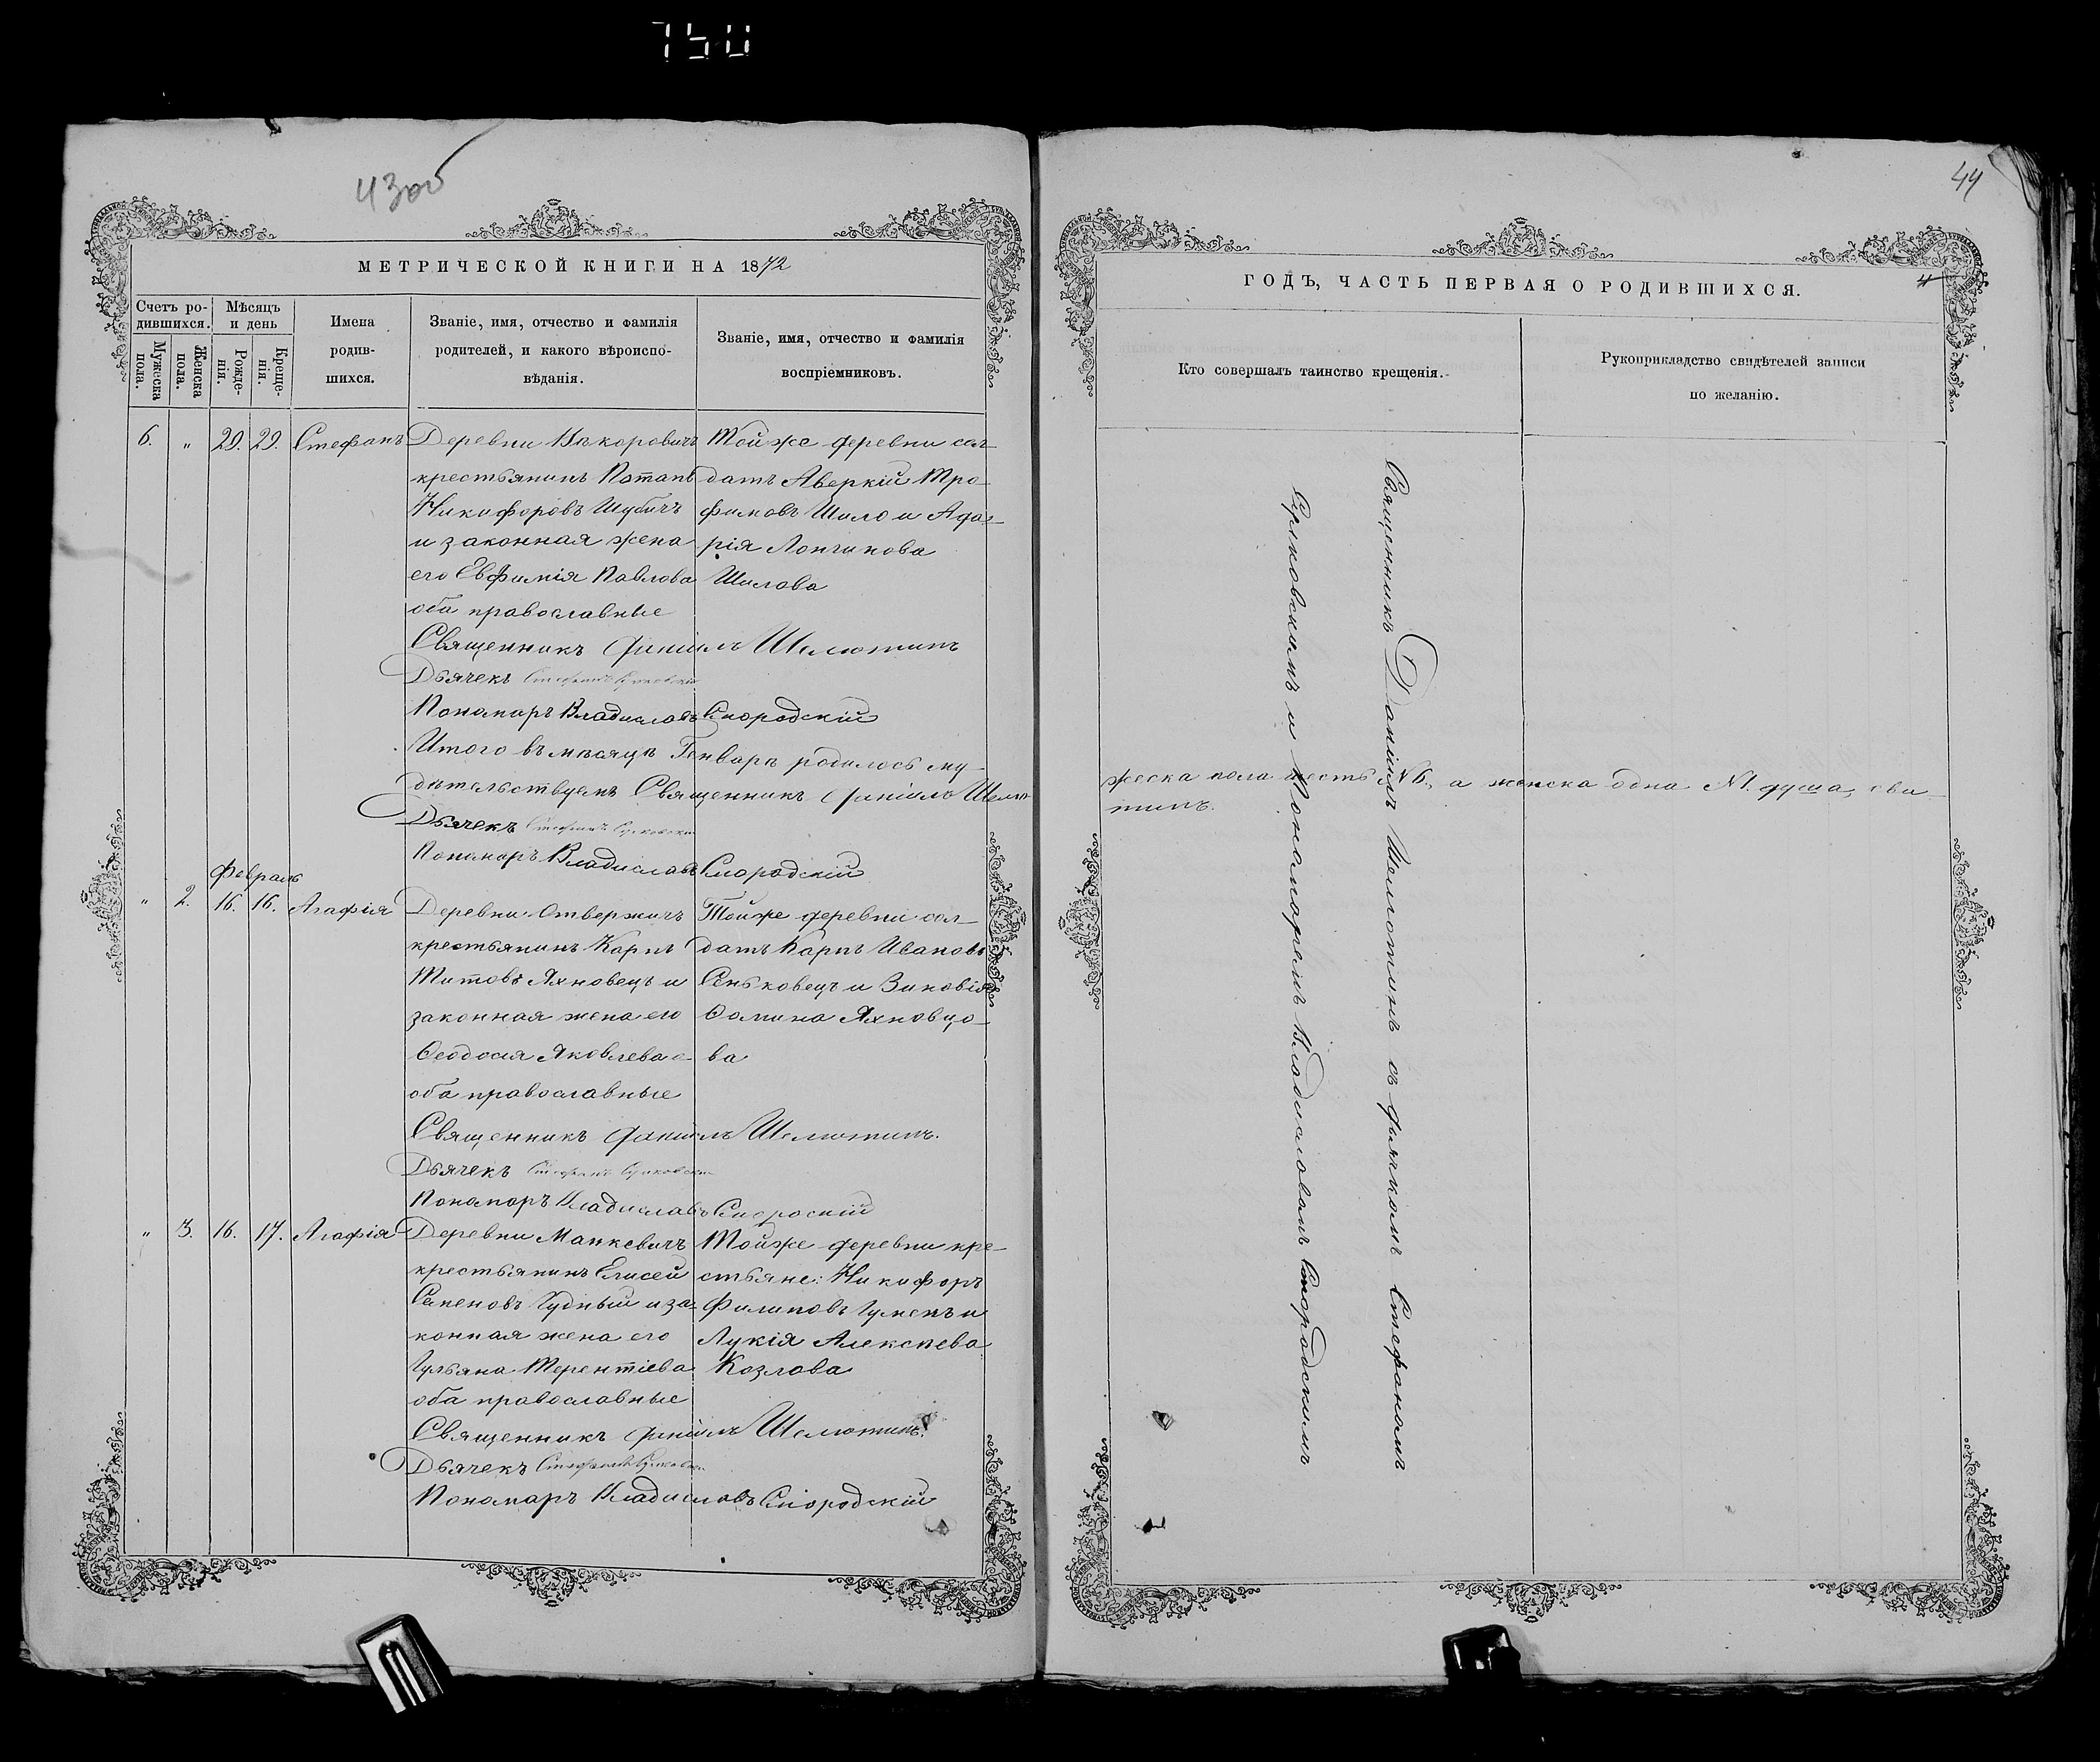 750
43 об
МЕТРИЧЕСКОЙ КНИГИ НА 1872
Счетъ ро-
дившихся.
Мужеска
пола.
Женска
пола.
Мѣсяцъ
и день
Рожде-
нія.
Креще-
нія.
Имена
родив-
шихся.
Званіе, имя, отчество и фамилія
родителей, и какого вѣроиспо-
вѣданія.
Званіе, имя, отчество и фамилія
воспріемниковъ.
6. " 29. 29. Стефанъ
Деревни
крестьянинъ Потапъ
Никифоровъ Шубичъ
и законная жена
его Евфимія Павлова
оба православные
Тойже деревни сол-
датъ Аверкій Тро-
фимовъ Шило и Ада-
рія Лонгинова
Шилова
Священникъ Даніилъ Шелютинъ
Дьячекъ Стефанъ
Пономаръ Владиславъ Смородскій
Итого въ мѣсяцѣ Генварѣ родилось му-
дѣтельствуемъ Священникъ Даніилъ Шелю-
Дьячекъ Стефанъ
Пономаръ Владиславъ Смородскій
Февраль
" 2. 16. 16. Агафія
Деревни Отвержичъ
крестьянинъ Карпъ
Титовъ Яхновецъ и
законная жена его
Ѳеодосія Яковлева
оба православные
Тойже деревни сол-
датъ Карпъ Ивановъ
Сеньковецъ и Зиновія
Ѳомина Яхновцо-
ва
Священникъ Даніилъ Шелютинъ.
Дьячекъ Стефанъ
Пономаръ Владиславъ Смородскій
" 3. 16. 17. Агафія
Деревни Манкевичъ
крестьянинъ Елисей
Семеновъ Чудный и за-
конная жена его
Ульяна Терентіева
оба православные
Тойже деревни кре-
стьяне: Никифоръ
Филиповъ и
Лукія Алексѣева
Козлова
Священникъ Даніилъ Шелютинъ.
Дьячекъ Стефанъ
Пономаръ Владиславъ Смородскій
44
ГОДЪ, ЧАСТЬ ПЕРВАЯ О РОДИВШИХСЯ.
Кто совершалъ таинство крещенія.
Рукоприкладство свидѣтелей записи
по желанію.
Священникъ Даніилъ Шелютинъ съ дьячкомъ Стефаномъ
и Пономаремъ Владиславомъ Смородскимъ
жеска пола шесть №6., а женска одна №1. душа, сви-
тинъ.